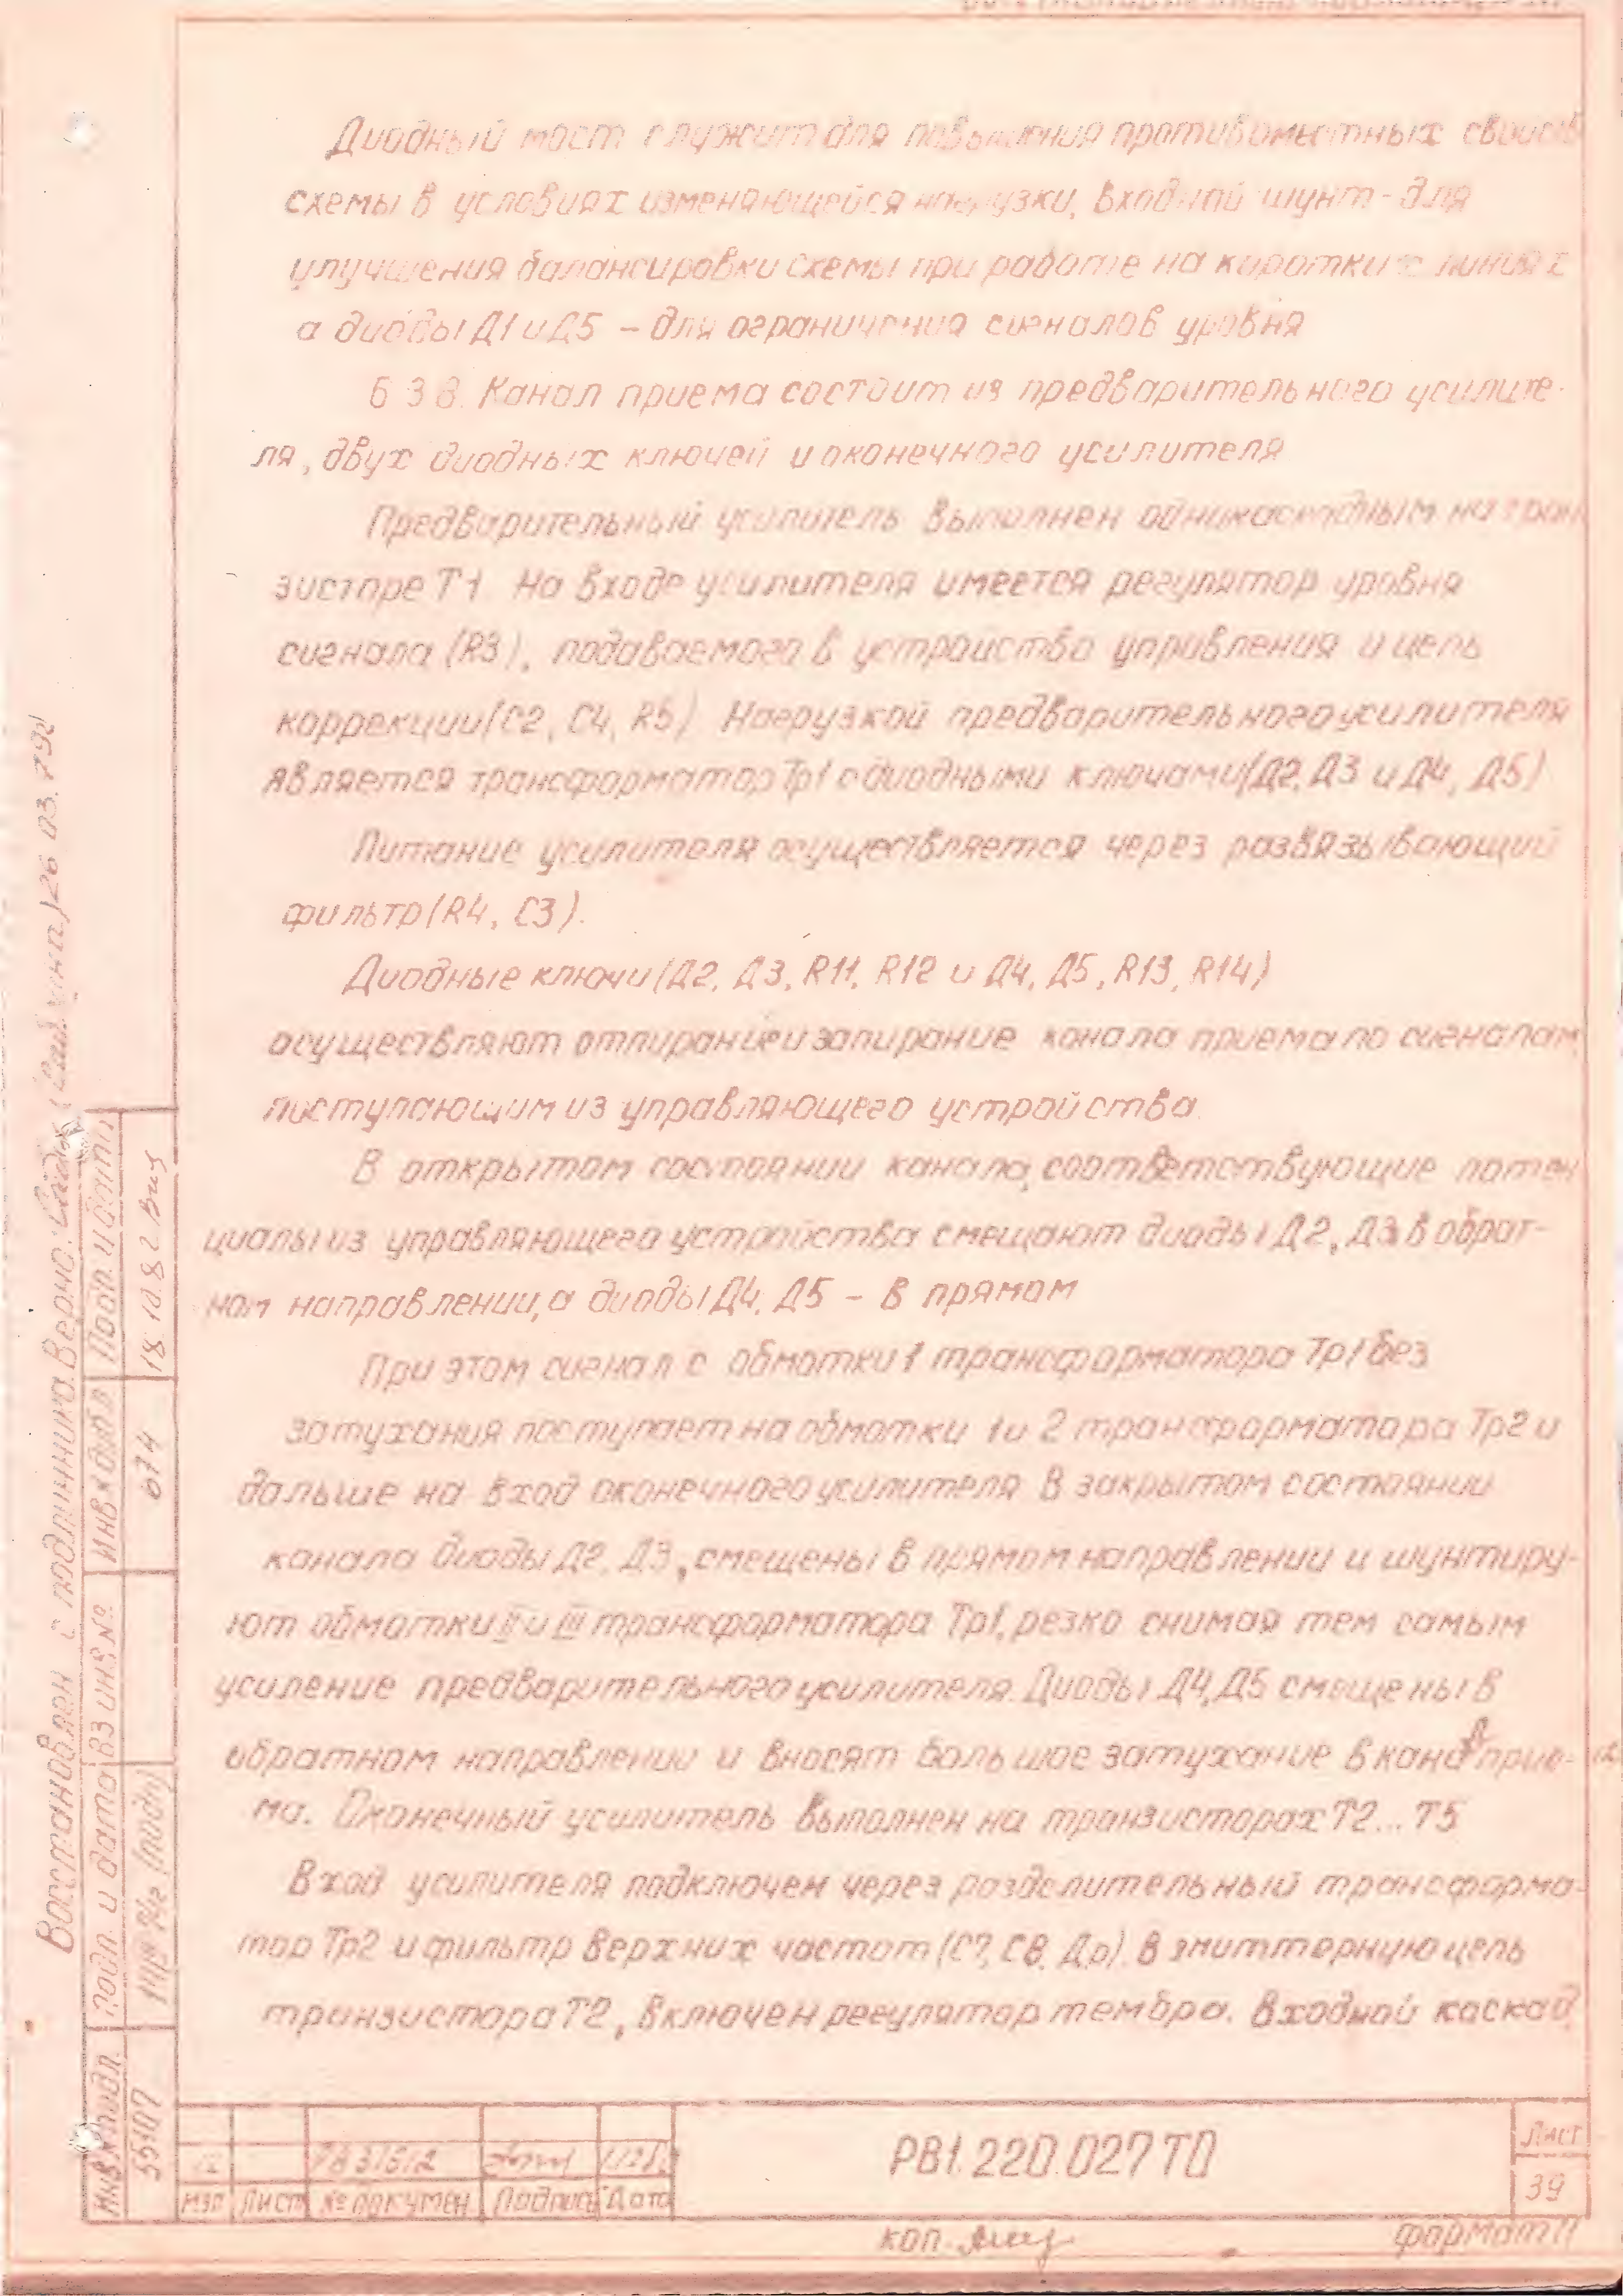 Диодный мост служит для повышения противоместных свойств
схемы в условиях изменяющейся нагрузки, входной шунт - для
улучшения балансировки схемы при работе на коротких линиях
а диоды Д1 и Д5 - для ограничения сигналов уровня
6 3 8. Канал приема состоит из предварительного усилите-
ля, двух диодных ключей и оконечного усилителя
Предварительный усилитель выполнен однокаскадным на тран
зисторе Т1. На входе усилителя имеется регулятор уровня
сигнала (R3), подаваемого в устройство управления и цепь
коррекции (С2, С4, R5). Нагрузкой предварительного усилителя
является трансформатор Тр1 с диодными ключами (Д2, Д3 и Д4, Д5)
Питание усилителя осуществляется через развязывающий
фильтр (R4, С3).
Диодные ключи (Д2, Д3, R11, R12 и Д4, Д5, R13, R14)
осуществляют отпирание и запирание канала приема по сигналам,
поступающим из управляющего устройства.
В открытом состоянии канала, соответствующие потен
циалы из управляющего устройства смещают диоды Д2, Д3 в обрат-
ном направлении, а диоды Д4, Д5 - в прямом
При этом сигнал с обмотки 1 трансформатора Тр1 без
затухания поступает на обмотки 1 и 2 трансформатора Тр2 и
дальше на вход оконечного усилителя. В закрытом состоянии
канала диоды Д2, Д3, смещены в прямом направлении и шунтиру-
ют обмотки II и III трансформатора Тр1, резко снимая тем самым
усиление предварительного усилителя. Диоды Д4, Д5 смещены в
обратном направлении и вносят большое затухание в канал прие-
ма. Оконечный усилитель выполнен на транзисторах Т2...Т5
Вход усилителя подключен через разделительный трансформа-
тор Тр2 и фильтр верхних частот (С7, С8, Др). В эмиттерную цепь
транзистора Т2, включен регулятор тембра. Входной каскад,
Восстановлен с подлинника. Верно: 26 03. 79г
Подп. и дата
18.10.82
Инв № дубл
674
Вз инв №
Подп. и дата
(подп)
Инв № подл.
55107
12
РВ 315/2
Изм Лист № докумен Подпись Дата
РВ1.220.027 ТО
Лист
39
коп.
формат 11